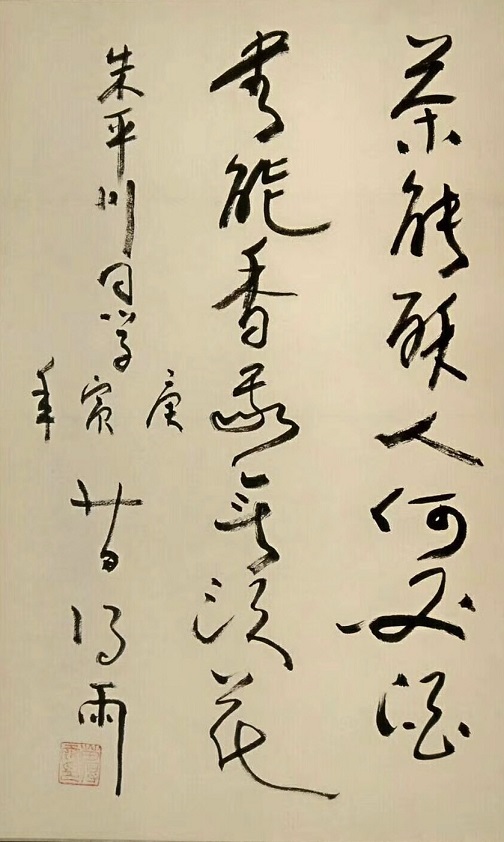 茶能醉人何必酒
書能香我無須花
朱平川同学
庚寅年
雨